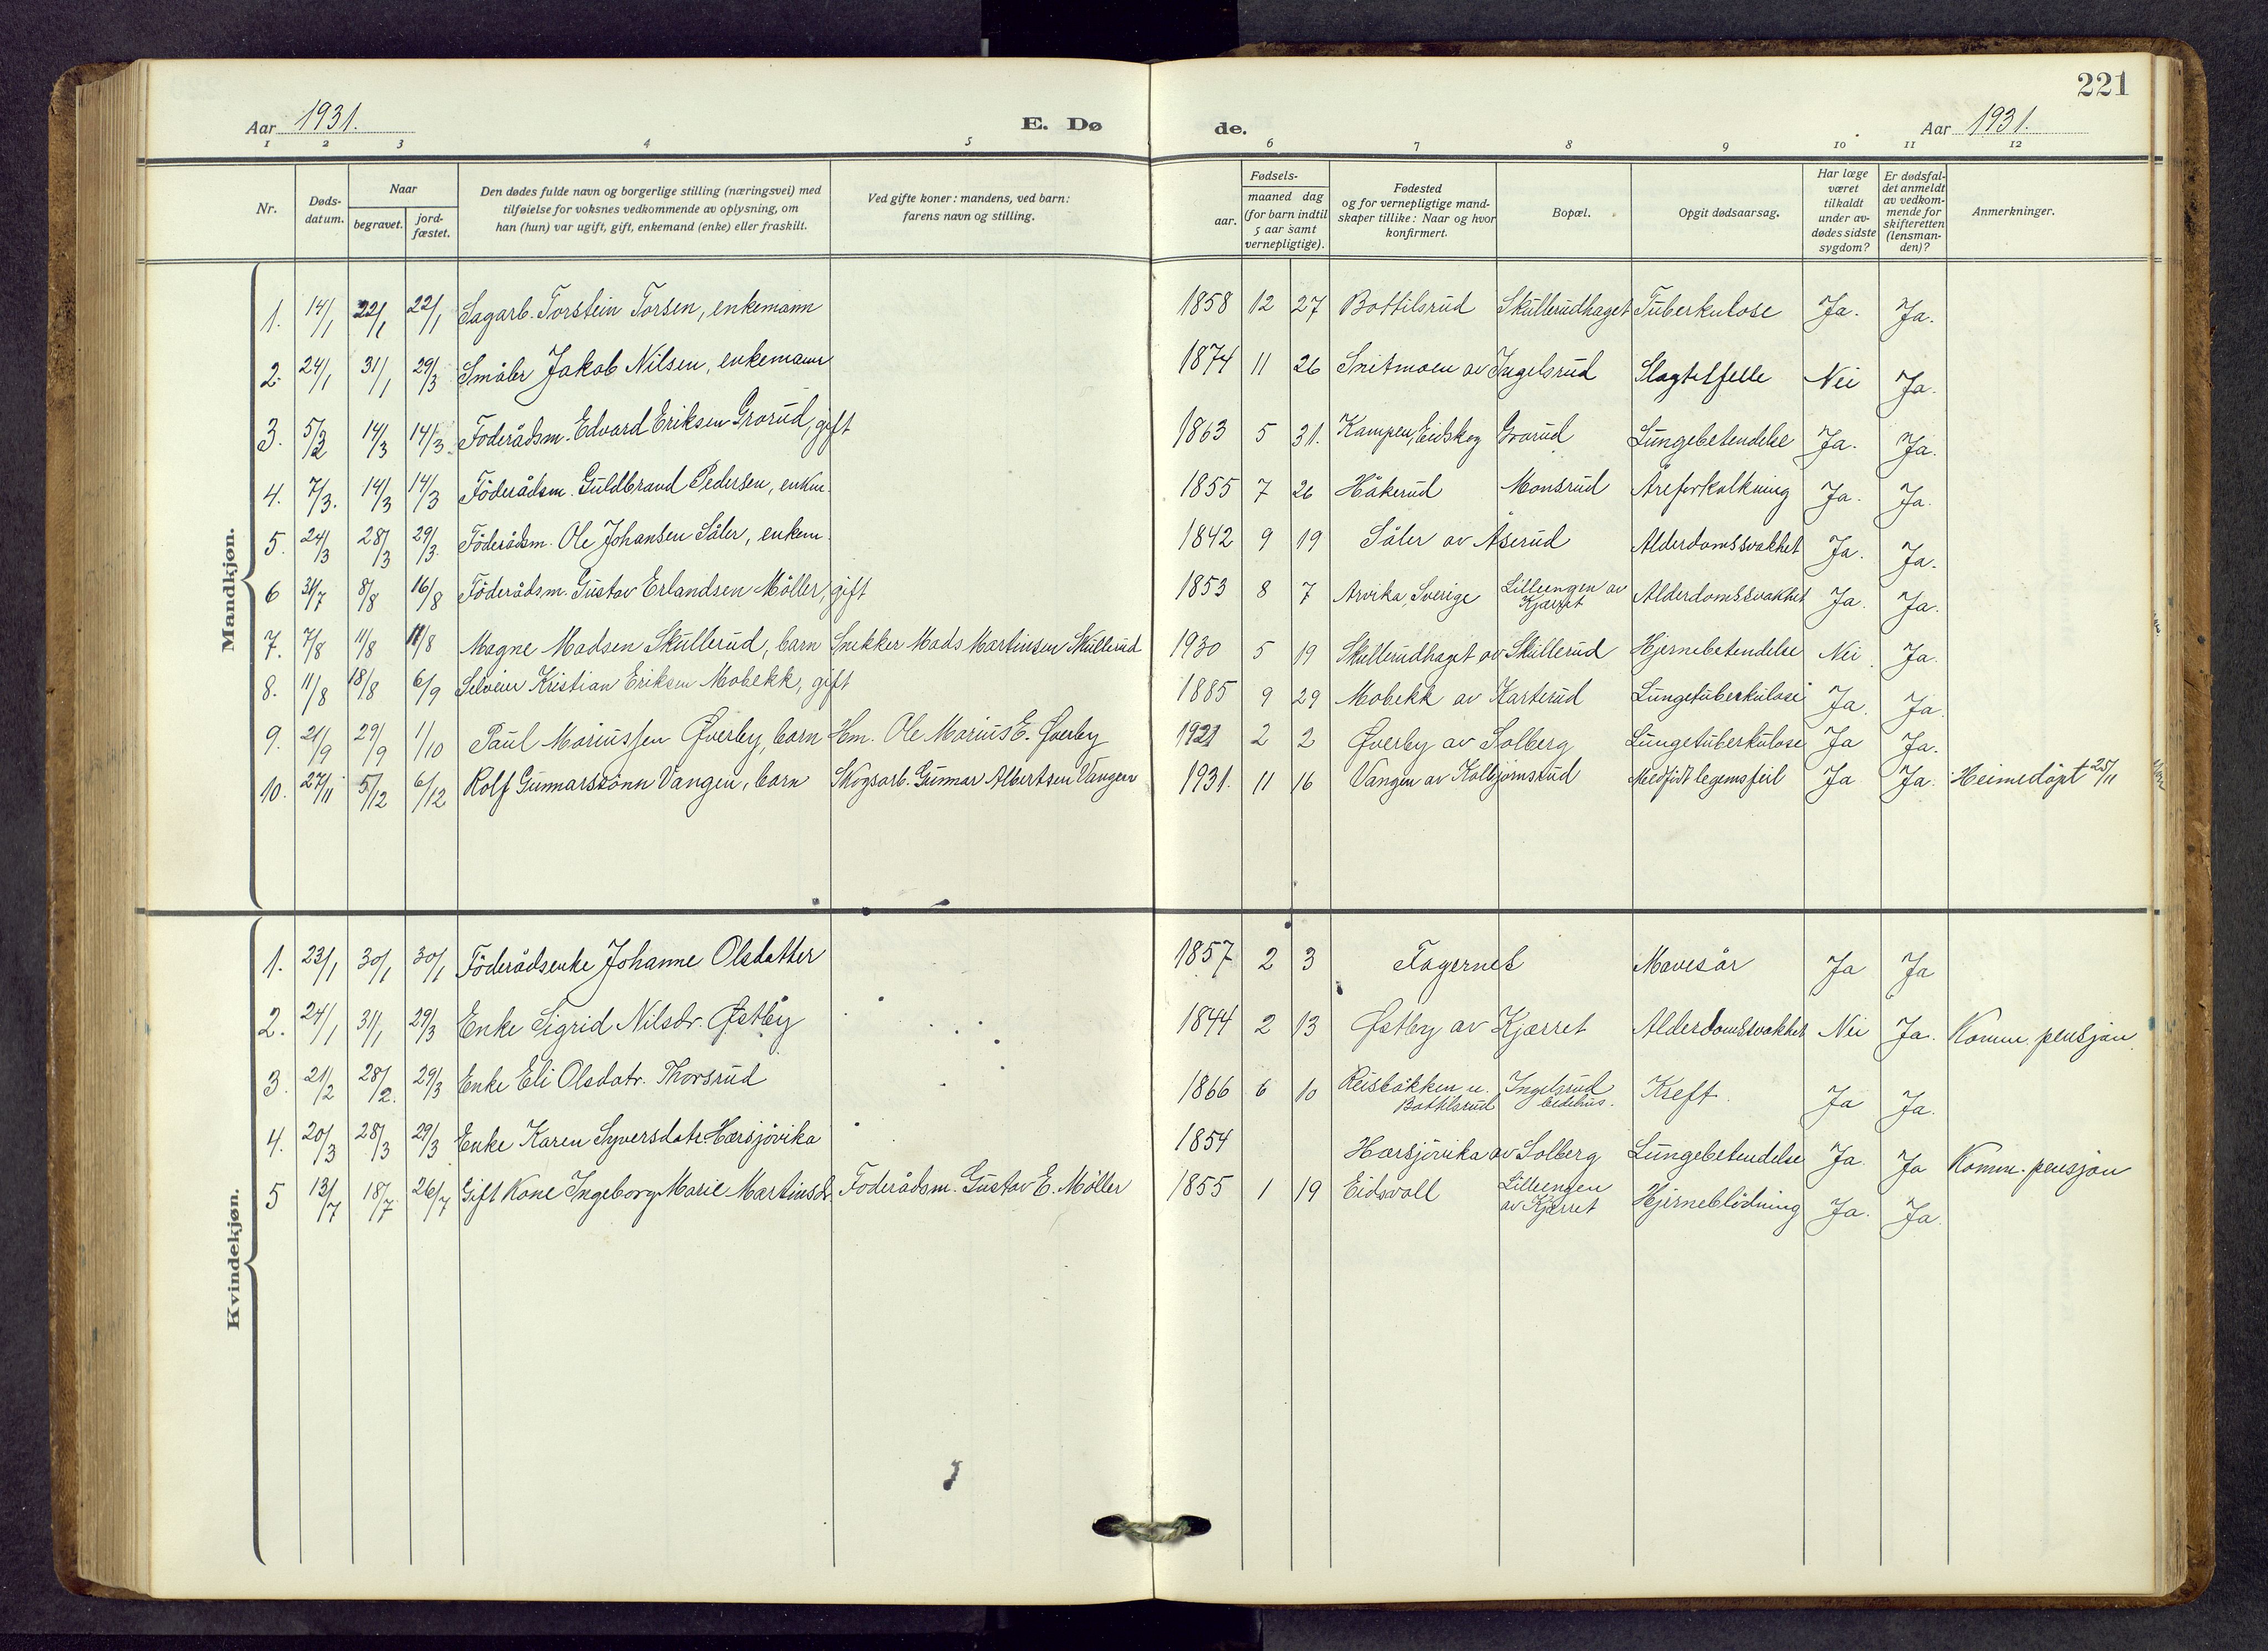 221
Aar 1931. E. Dø de. Aar 1931.
1 2 3 4 5 6 7 8 9 10 11 12
Nr.
Døds-
datum.
Naar
begravet.
jord-
fæstet.
Den dødes fulde navn og borgerlige stilling (næringsvei) med
tilføielse for voksnes vedkommende av oplysning, om
han (hun) var ugift, gift, enkemand (enke) eller fraskilt.
Ved gifte koner: mandens, ved barn:
farens navn og stilling.
Fødsels-
aar.
maaned dag
(for barn indtil
5 aar samt
vernepligtige).
Fødested
og for vernepligtige mand-
skaper tillike: Naar og hvor
konfirmert.
Bopæl.
Opgit dødsaarsag.
Har læge
været
tilkaldt
under av-
dødes sidste
sygdom?
Er dødsfal-
det anmeldt
av vedkom-
mende for
skifteretten
(lensman-
den)?
Anmerkninger.
Mandkjøn.
1. 14/1 22/1 22/1 Sagarb. Torstein Torsen, enkemann 1858 12 27 Bottilsrud Skullerudhaget Tuberkulose Ja. Ja.
2. 24/1 31/1 29/3 Småbr Jakob Nilsen, enkemann 1874 11 26 Snitmoen av Ingelsrud Slagtilfelle Nei Ja.
3. 5/3 14/3 14/3. Föderådsm. Edvard Eriksen Grorud, gift 1863 5 31. Kampen, Eidskog Grorud Lungebetendelse Ja. Ja.
4. 7/3. 14/3 14/3 Föderådsm. Guldbrand Pedersen, enkm. 1855 7 26 Håkerud Monsrud Åreforkalkning Ja. Ja.
5. 24/3 28/3 29/3. Föderådsm. Ole Johansen Såler, enkem. 1842 9 19 Såler av Åserud Alderdomssvakhet Ja. Ja.
6 31/7 8/8 16/8 Föderådsm. Gustav Erlandsen Möller, gift 1853 8 7 Arvika, Sverige Lilleengen av Kjærret Alderdomssvakhet Ja. Ja.
7. 7/8 11/8 11/8 Magne Madsen Skullerud, barn Snekker Mads Martinsen Skullerud 1930 5 19 Skullerudhaget av Skullerud Hjernebetendelse Nei Ja.
8. 11/8 18/8 6/9 Selveier Kristian Eriksen Mobekk, gift 1885 9 29 Mobekk av Karterud Lungetuberkulose Ja. Ja.
9. 21/9 29/9 1/10 Paul Mariussen Øverby, barn Hm. Ole Marius E. Øverby 1921 2 2 Øverby av Solberg Lungetuberkulose Ja Ja.
10. 27/11 5/12 6/12 Rolf Gunnarssönn Vangen, barn Skogsarb. Gunnar Albertsen Vangen 1931. 11 16 Vangen av Kolbjørnsrud Medfödt legemsfeil Ja Ja. Heimedöpt 25/11
Kvindekjøn.
1. 23/1 30/1 30/1 Föderådsenke Johanne Olsdatter 1857 2 3 Fagernes Mavesår Ja Ja
2. 24/1 31/1 29/3 Enke Sigrid Nilsdr. Østby 1844 2 13 Østby av Kjærret Alderdomssvakhet Nei Ja. Komm. pensjon.
3. 21/2 28/2. 29/3 Enke Eli Olsdatr. Thorsrud 1866 6 10 Reisbåkken u. Bottilsrud Ingelsrud bedehus. Kreft. Ja Ja.
4. 20/3 28/3 29/3 Enke Karen Syversdatr Hærsjövika 1854 Hærsjövika av Solberg Lungebetendelse Ja. Ja Komm. pensjon
5 13/7 18/7 26/7 Gift Kone Ingeborg Marie Martinsdr. Föderådsm. Gustav E. Möller 1855 1 19 Eidsvoll Lilleengen av Kjærret Hjerneblödning Ja. Ja.